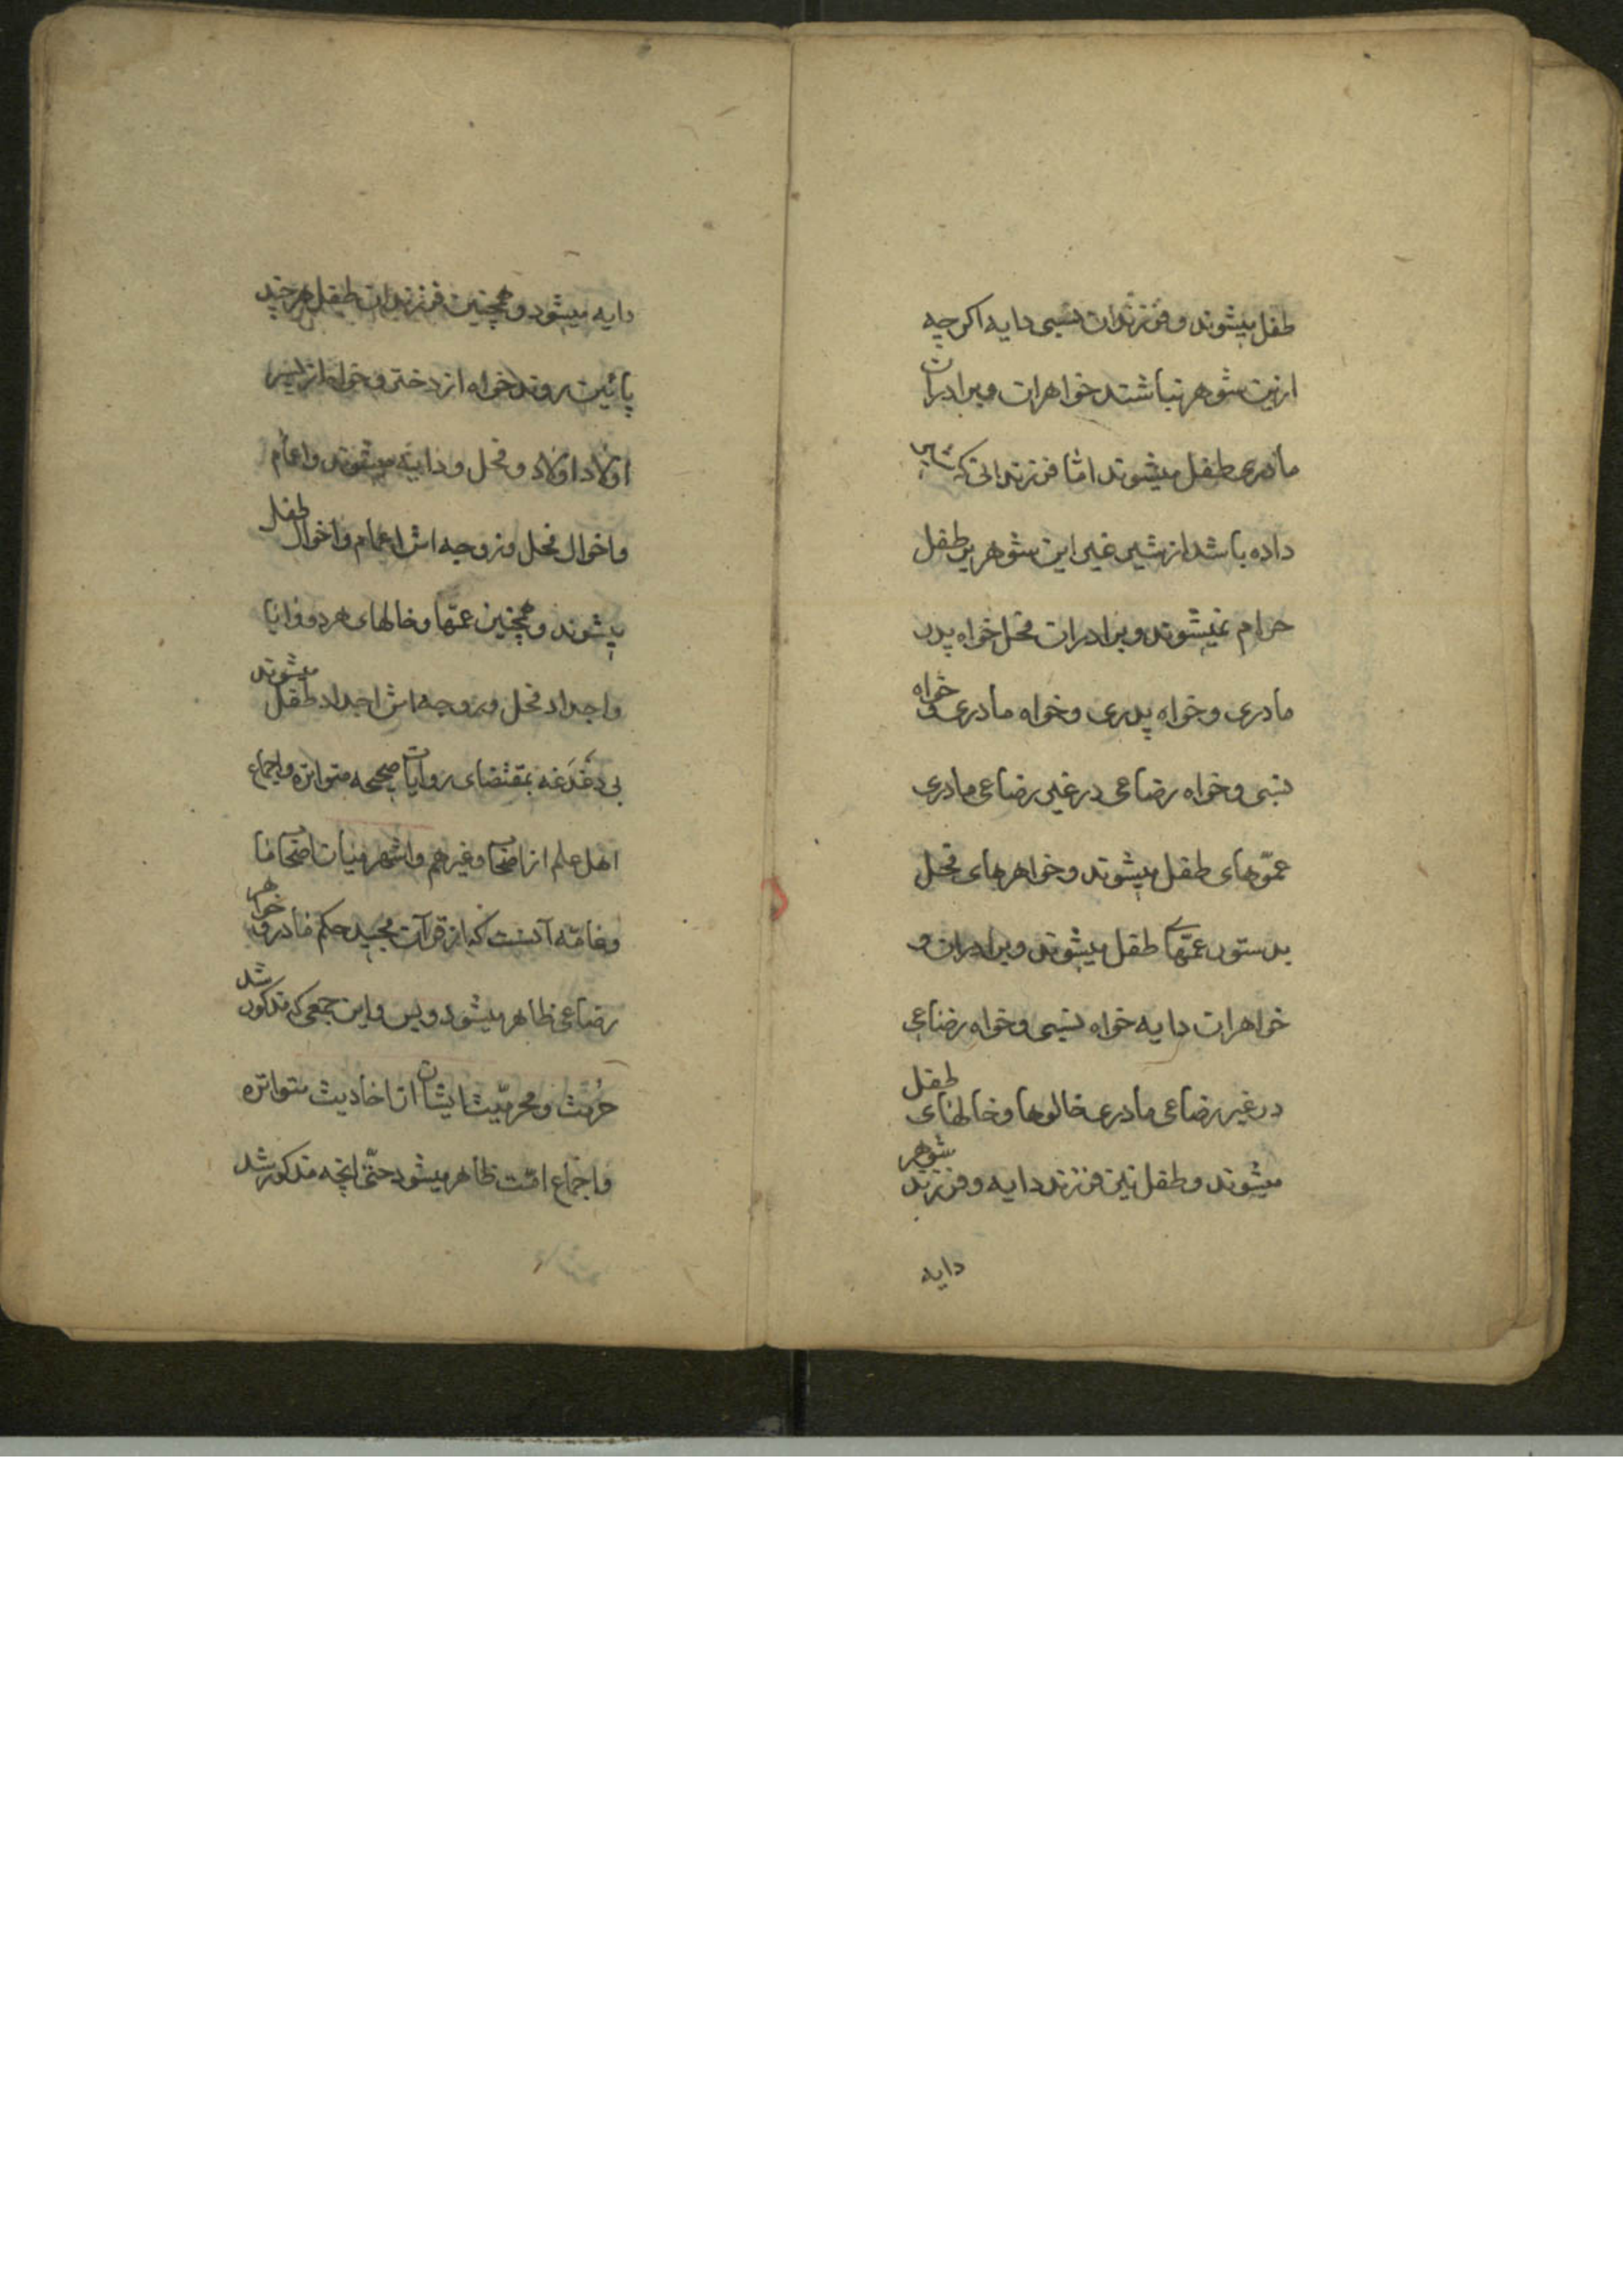 طفل میشوند و فرزندان نسبی دایه اکرچه
ازین شوهر نباشند خواهران و برادران
مادری طفل میشوند امّا فرزندانی که شیر
داده باشد از شیر غیر این شوهر بر طفل
حرام نمیشوند و برادران فحل خواه پدر
مادری و خواه پدری و خواه مادری و خواه
نسبی و خواه رضاعی در غیر رضاعی مادری
عموّهای طفل میشوند و خواهرهای فحل
بدستور عمّهای طفل میشوند و برادران و
خواهران دایه خواه نسبی و خواه رضاعی
در غیر رضاعی مادری خالوها و خالهای طفل
میشوند و طفل نیز فرزند دایه و فرزند شوهر
دایه
دایه میشود و همچنین فرزندان طفل هر چند
پائین روند خواه از دختر و خواه از پسر
اولاد اولاد فحل و دایه میشوند و اعمام
و اخوال فحل و زوجه اش اعمام و اخوال طفل
میشوند و همچنین عمّها و خالهای هر دو
و اجداد فحل و زوجه اش اجداد طفل میشوند
بی دغدغه بمقتضای روایات صحیحه متواتره و اجماع
اهل علم از اصحاب و غیرهم و اشهر میان اصحاب ما
و عامّه آنست که از قرآن مجید حکم مادر و خواهر
رضاعی ظاهر میشود و بس و این جمعی که مذکور شد
حرمت و محرمیّت ایشان از احادیث متواتره
و اجماع امّت ظاهر میشود حتّی انچه مذکور شد